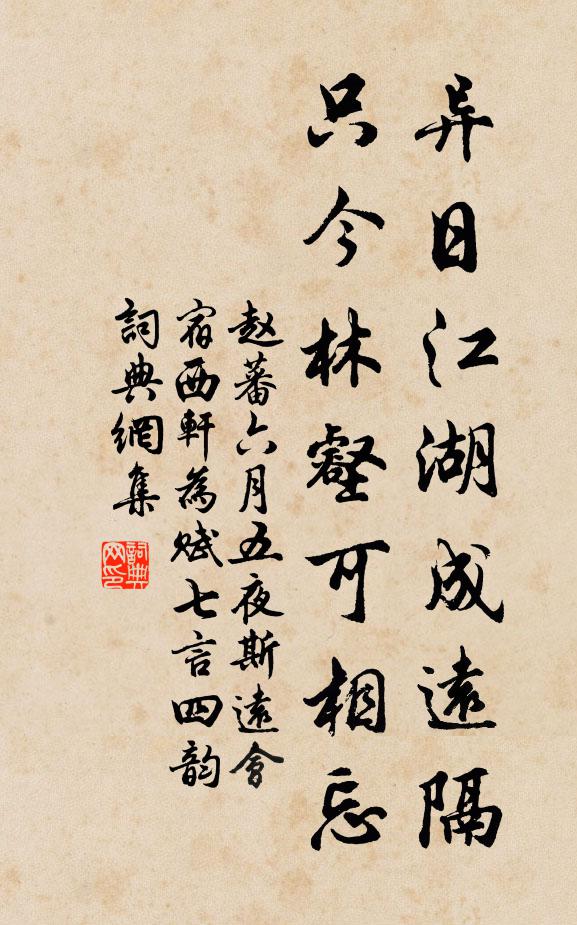 异日江湖成遠隔
只今林壑可相忘
赵蕃六月五夜斯遠會
宿西軒為赋七言四韵
詞典網集
詞典网印